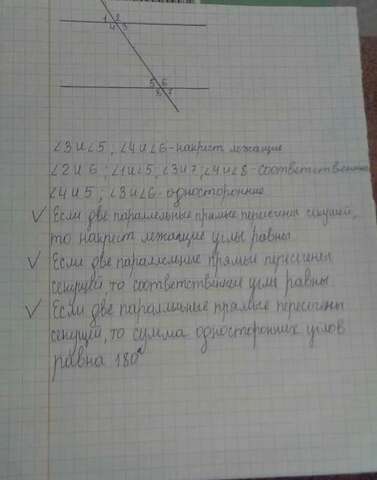 1 2
4 3
5 6
8 7
∠3 и ∠5 ; ∠4 и ∠6 - накрест лежащие
∠2 и 6 ; ∠1 и ∠5 ; ∠3 и 7 ; ∠4 и ∠8 - соответственные
∠4 и 5 ; ∠3 и ∠6 - односторонние
✓ Если две параллельные прямые пересечены секущей,
то накрест лежащие углы равны
✓ Если две параллельные прямые пересечены
секущей то соответственные углы равны.
✓ Если две параллельные прямые пересечены
секущей, то сумма односторонних углов
равна 180°